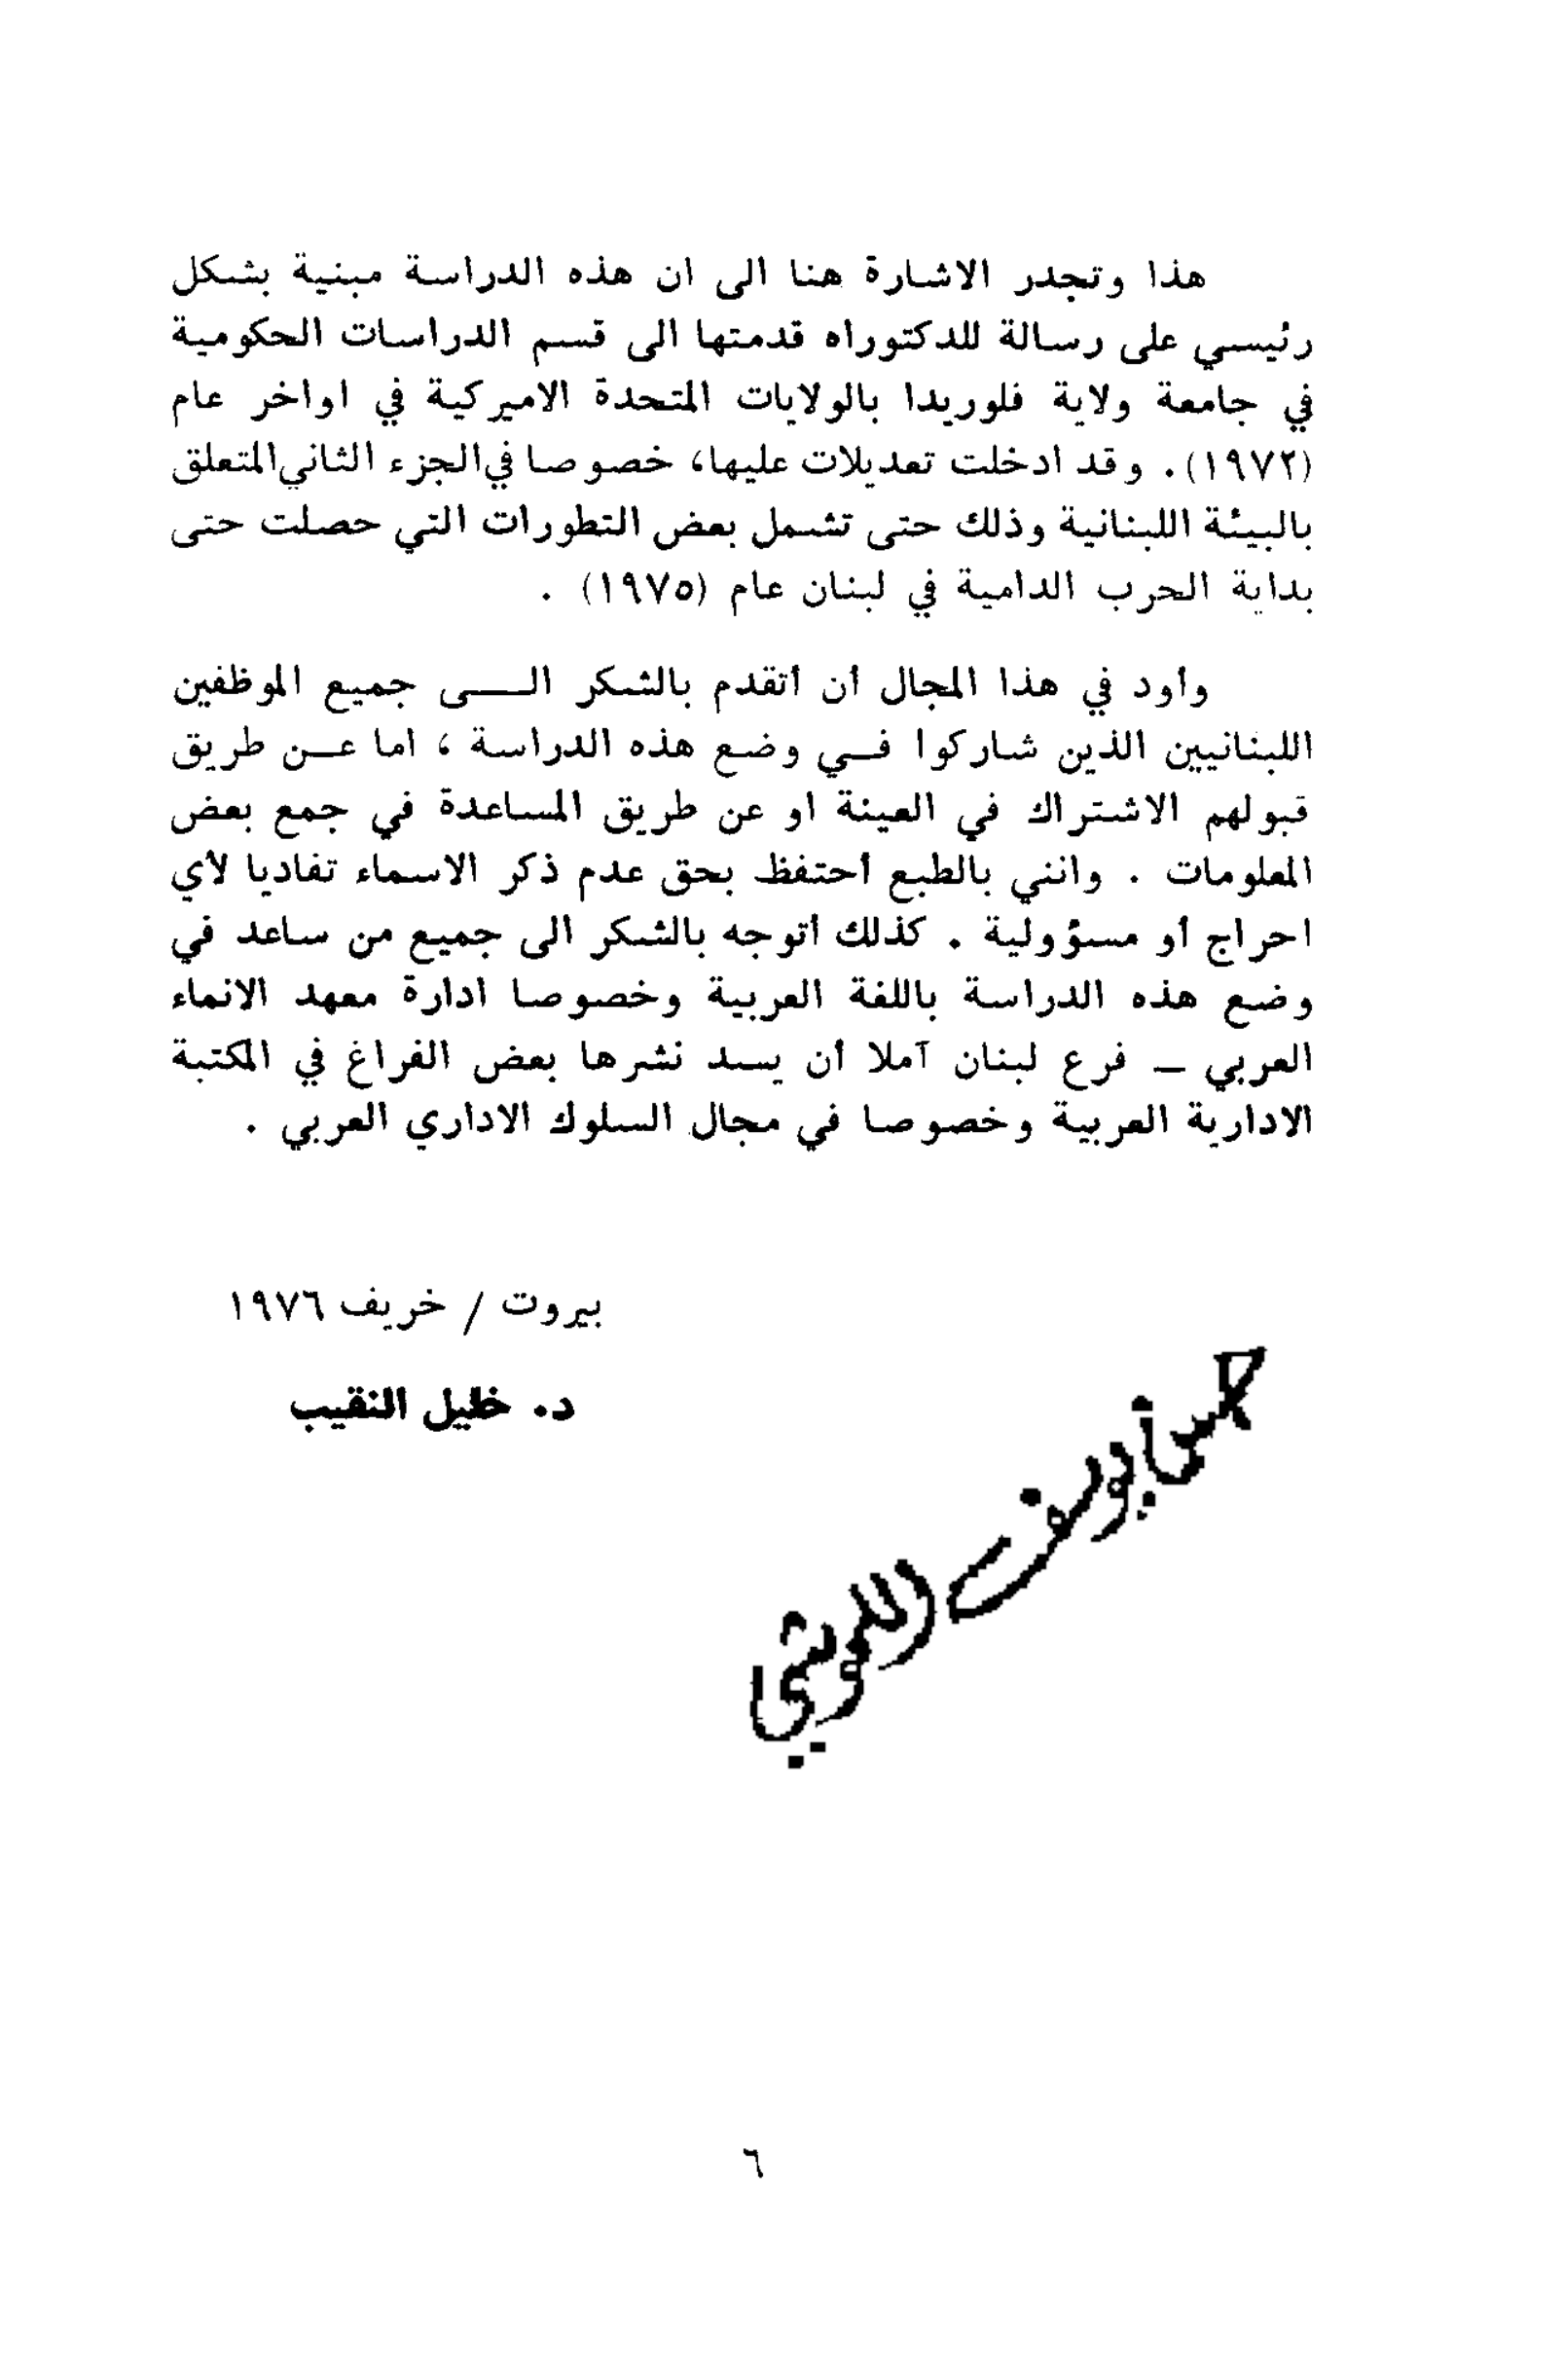 هذا وتجدر الاشارة هنا الى ان هذه الدراسة مبنية بشكل
رئيسي على رسالة للدكتوراه قدمتها الى قسم الدراسات الحكومية
في جامعة ولاية فلوريدا بالولايات المتحدة الاميركية في اواخر عام
(١٩٧٢). وقد ادخلت تعديلات عليها، خصوصا في الجزء الثاني المتعلق
بالبيئة اللبنانية وذلك حتى تشمل بعض التطورات التي حصلت حتى
بداية الحرب الدامية في لبنان عام (١٩٧٥) .
وأود في هذا المجال أن أتقدم بالشكر الـــى جميع الموظفين
اللبنانيين الذين شاركوا فــي وضع هذه الدراسة ، اما عــن طريق
قبولهم الاشتراك في العينة او عن طريق المساعدة في جمع بعض
المعلومات . وانني بالطبع أحتفظ بحق عدم ذكر الاسماء تفاديا لأي
احراج أو مسؤولية . كذلك أتوجه بالشكر الى جميع من ساعد في
وضع هذه الدراسة باللغة العربية وخصوصا ادارة معهد الانماء
العربي – فرع لبنان آملا أن يسد نشرها بعض الفراغ في المكتبة
الادارية العربية وخصوصا في مجال السلوك الاداري العربي .
بيروت / خريف ١٩٧٦
د. خليل النقيب
٦